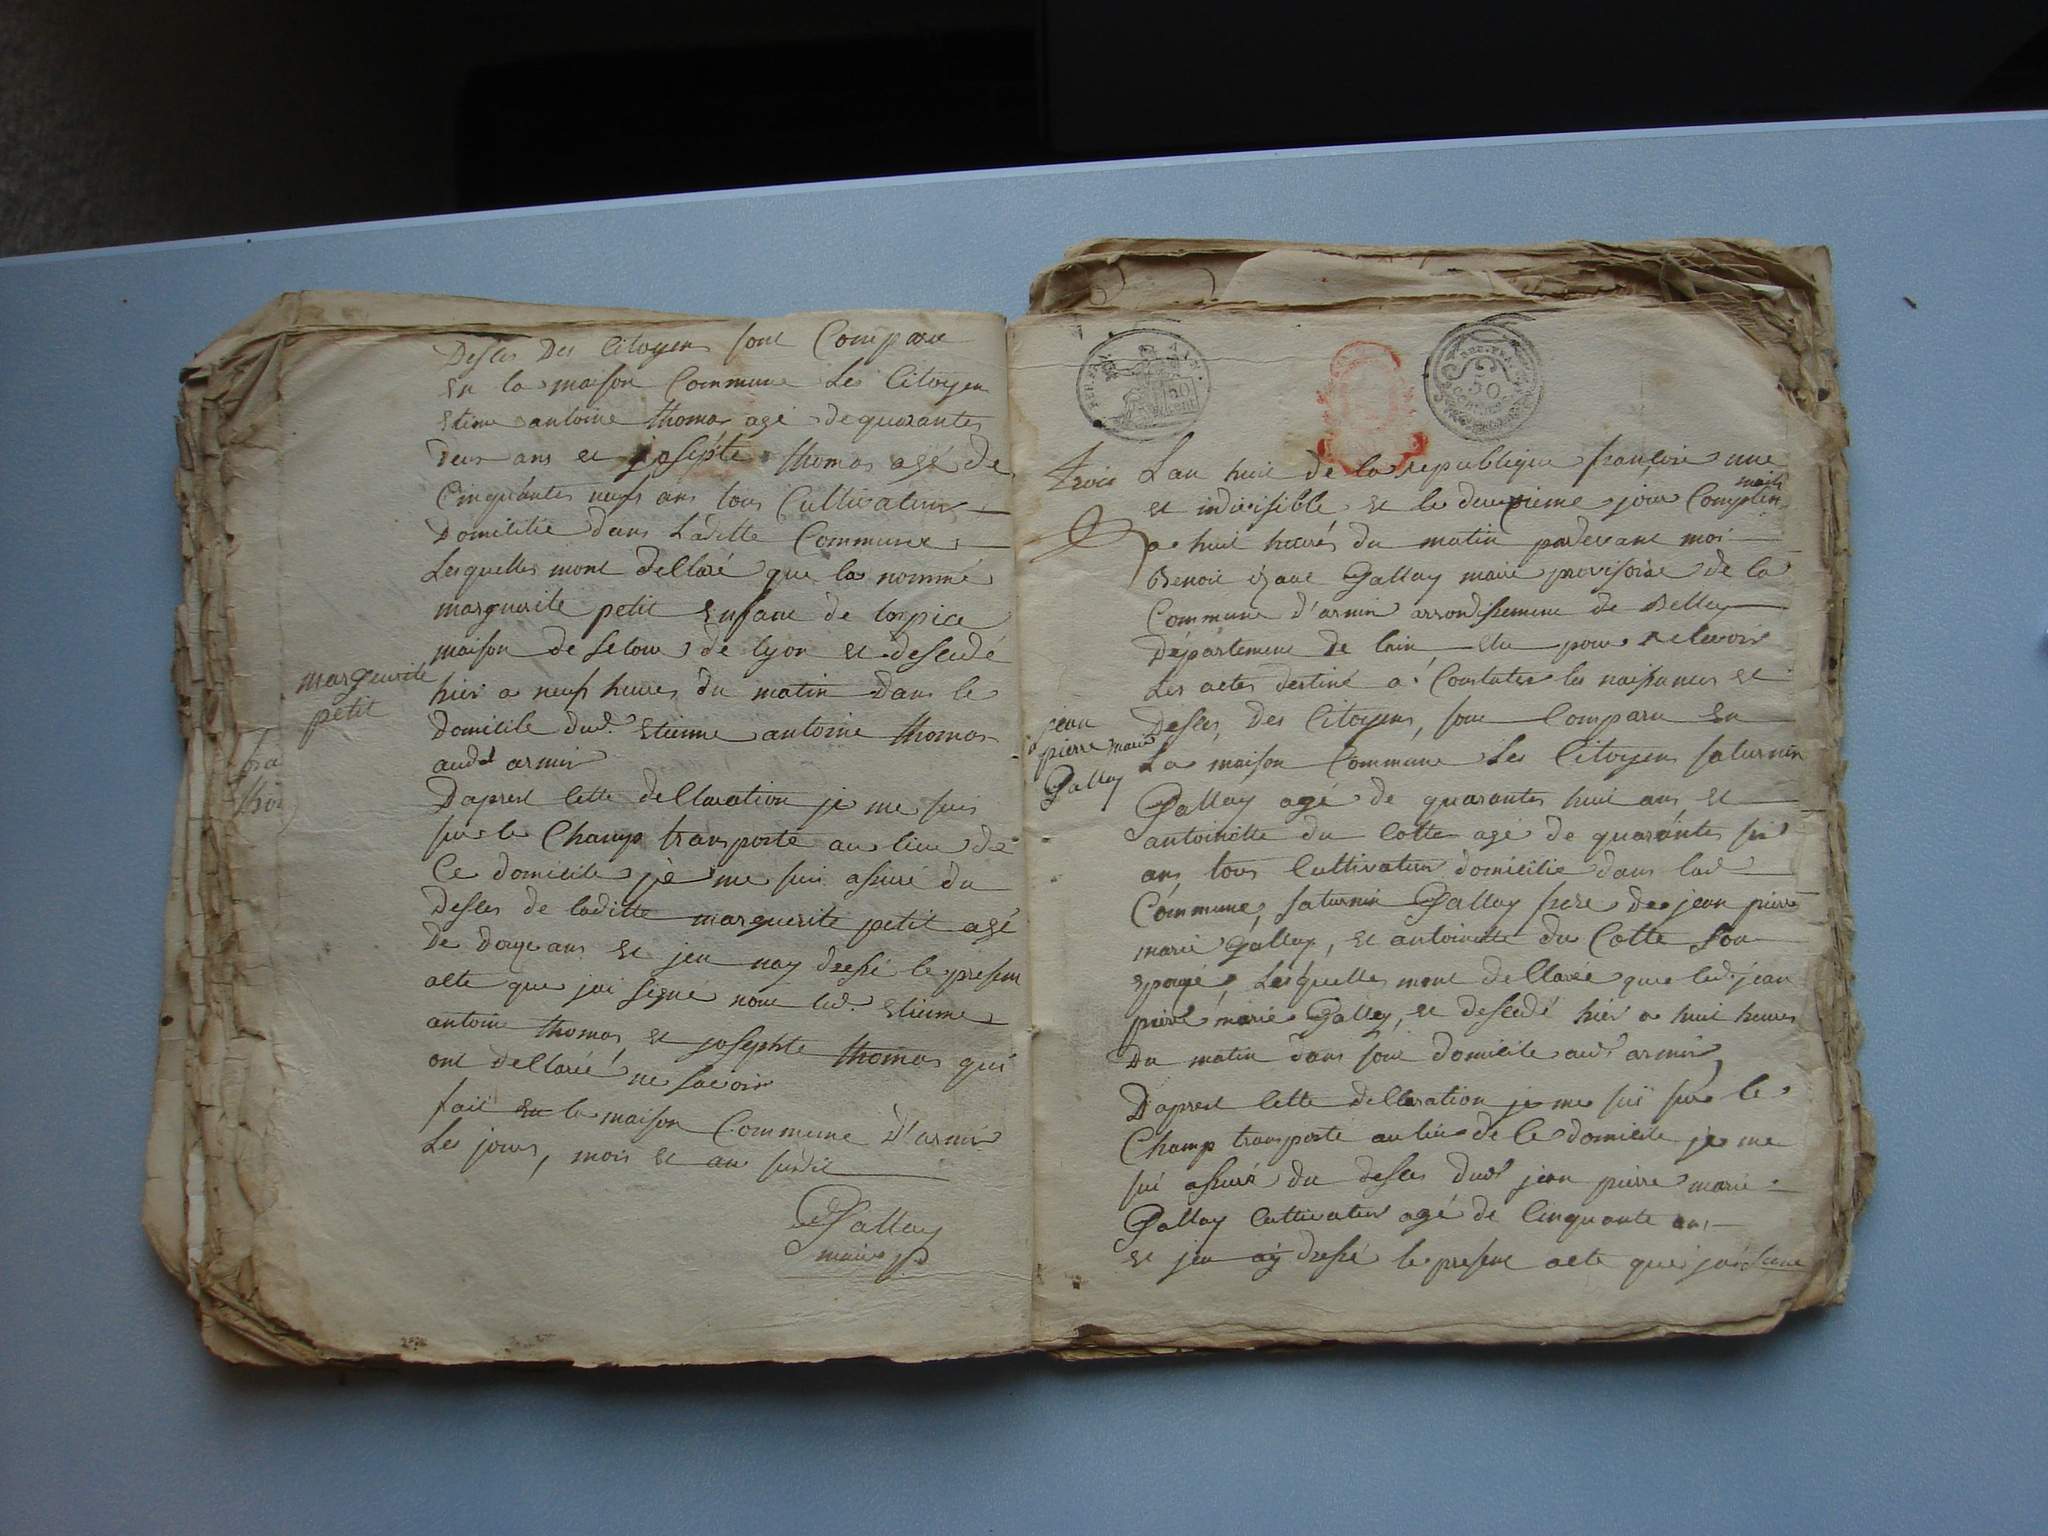 Desles Des Citoyens sont Comparu
en la maison Commune Les Citoyen
Etiene antoine thomas agé de quarantes
deux ans et josephte thomas agé de
Cinquantes neufs ans tous Cultivateurs
Domicilié dans Laditte Commune
Lesquelles mont dellaré que la nommé
marguerite petit enfant de lospice
maison de Lyon et desedé
hier a neufs heures du matin dans le
domicile dud. etienne antoine thomas
aud armix
marguerite
petit
Daprest Cette dellaration je me suis
sur le Champ transporté au lieu de
Ce domicile je me suis assuré du
desles de laditte marguerite petit agé
De douze ans et jen nay dressé le present
alte que jai signé nont led. etienne
antoine thomas et josephte thomas qui
ont dellaré ne savoir
fait en la maison Commune D'armix
Les jours, mois et an susdit
Gallay
maire
REP. FRA
50
cent
REP. FRA
50
CENTIMES
trois
Lan huit de la republique francoise une
et indivisible et le deuxieme jour Complem
a huit heures du matin pardevant moi
Benoit Gallay maire provisoire de la
Commune d'armix arrondissement de Belley
Departement de lain, elu pour relevoir
Les actes destiné a Constater les naissances et
desles, Des Citoyens, sont Comparu en
jean
pierre marie
Gallay
La maison Commune Les Citoyens saturnin
Gallay agé de quarantes huit ans, et
antoinette du Cotte agé de quarantes six
ans tous Cultivateur domicilié dans lad
Commune, saturnin Gallay frere de jean pierre
marie Gallay, et antoinette du Cotte son
epouse, Lesquelles mont dellaré que led. jean
pierre marie Galley, et desedé hier a huit heures
du matin dans son domicile aud armix
Daprest Cette dellaration je me sui sur le
Champ transporté au lieu de Ce domicile je me
sui assuré du desles dud jean pierre marie
Gallay Cultivateur agé de Cinquante ans
et jen ay dressé le present alte que jai